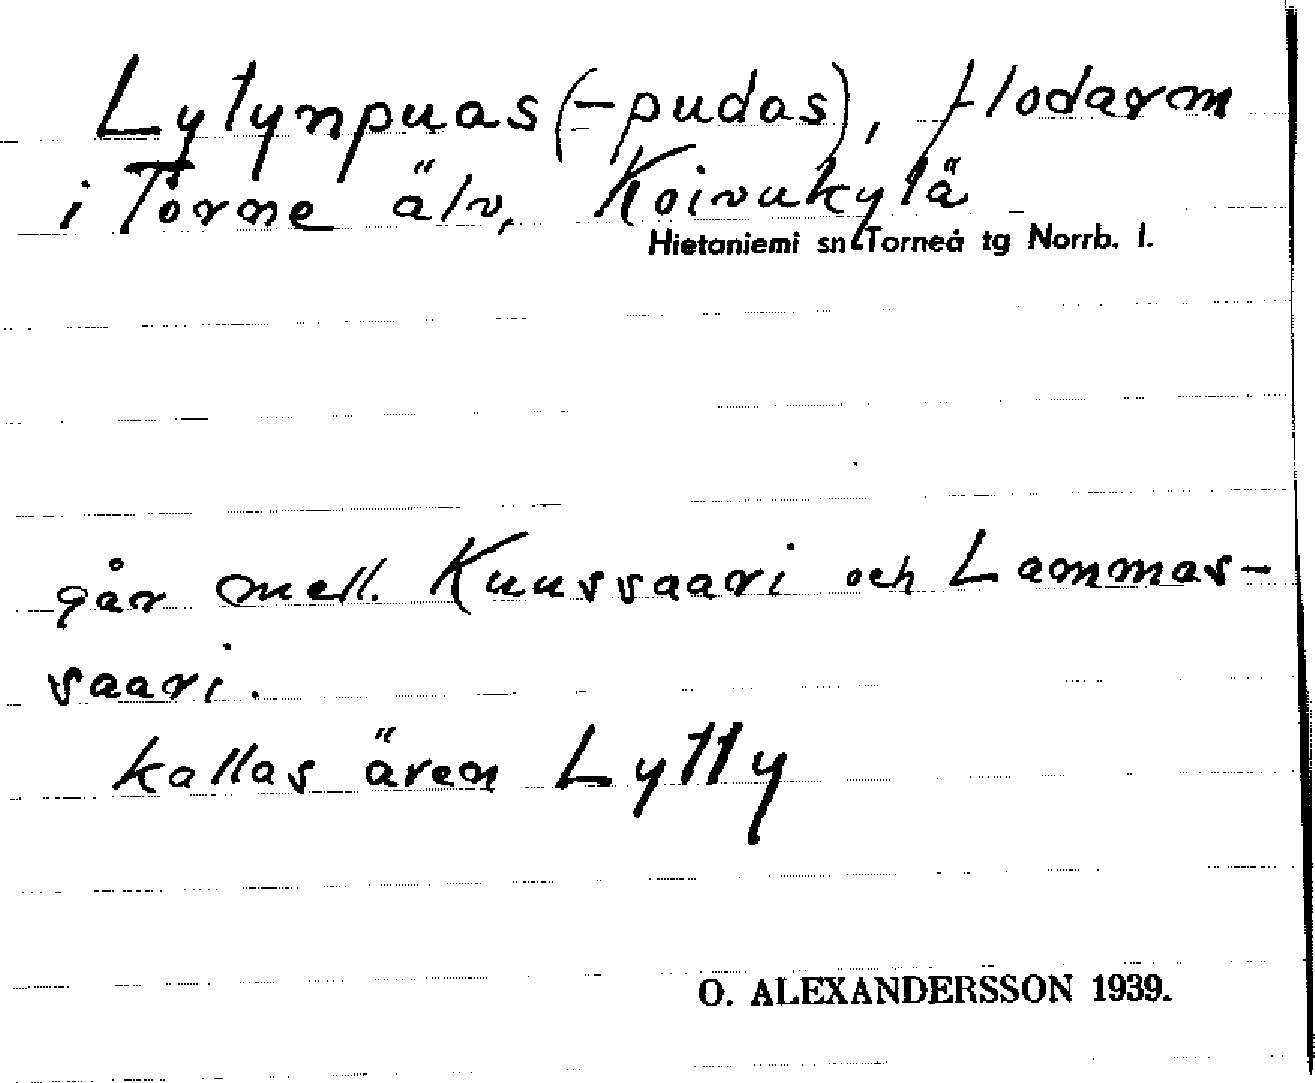 Lytynpuas (-pudas), flodarm
i Torne älv, Koivukylä
Hietaniemi sn Torneå tg Norrb. l.
går mell. Kuussaari och Lammas-
saari.
kallas även Lytty
O. ALEXANDERSSON 1939.